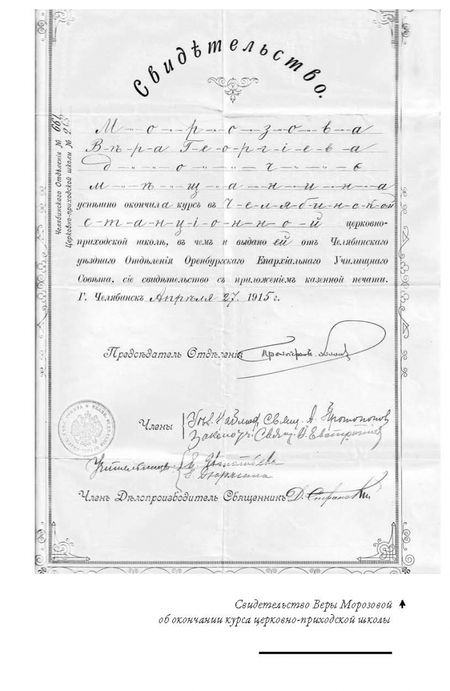 Свидѣтельство.
Челябинскаго Отдѣленія №
Церковно-приходской школы №
Морозова
Вѣра Георгіева
дочь
мѣщанина
успѣшно окончила курсъ въ Челябинской
станціонной церковно-
приходской школѣ, въ чемъ и выдано ей отъ Челябинскаго
уѣзднаго Отдѣленія Оренбургскаго Епархіальнаго Училищнаго
Совѣта, сіе свидѣтельство съ приложеніемъ казенной печати.
Г. Челябинскъ Апрѣля 27, 1915 г.
Предсѣдатель Отдѣленія
Члены Свящ. А. Протопопов
Законоуч. Свящ.
Учительницы
Членъ Дѣлопроизводитель Священникъ Д.
Свидетельство Веры Морозовой
об окончании курса церковно-приходской школы